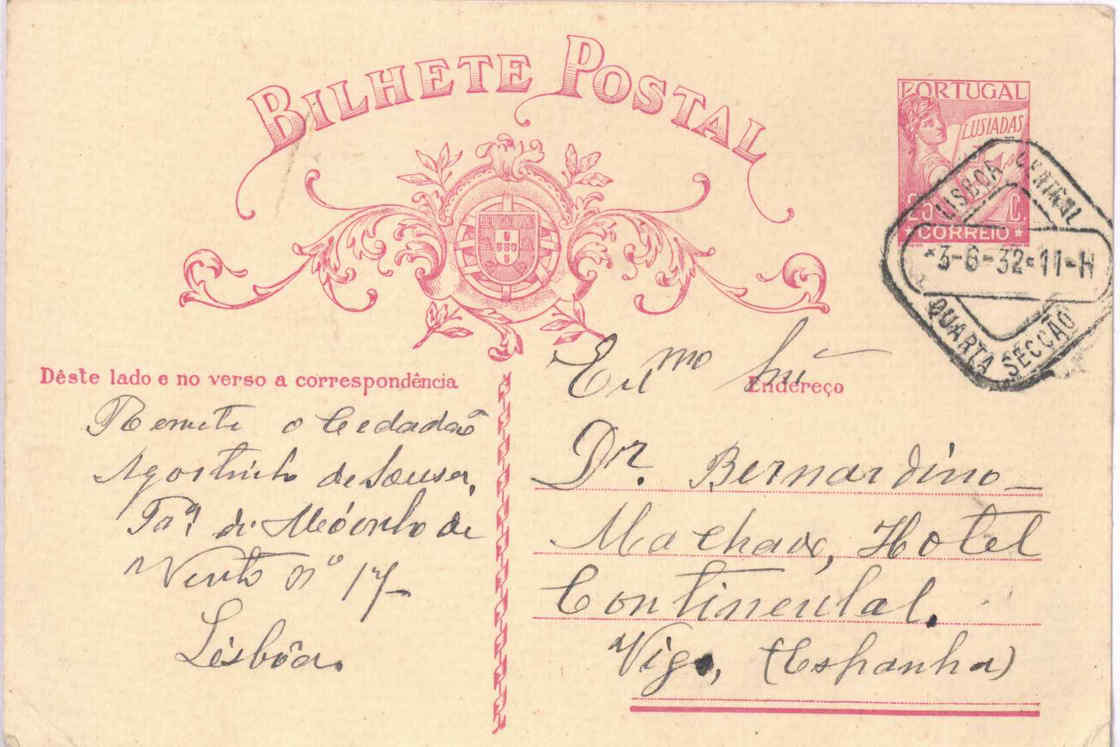 BILHETE POSTAL
PORTUGAL
LUSIADAS
C.
CORREIO
LISBOA CENTRAL
-3-6-32-11-H
QUARTA SECÇÃO
Dêste lado e no verso a correspondência
Endereço
Remete o Cedadaõ
Agostinho de Sousa,
Trª de Moinho de
Vento nº 17-
Lisbôa.
Exmo Snr
Dr. Bernardino
Machado, Hotel
Continental.
Vigo, (Espanha)